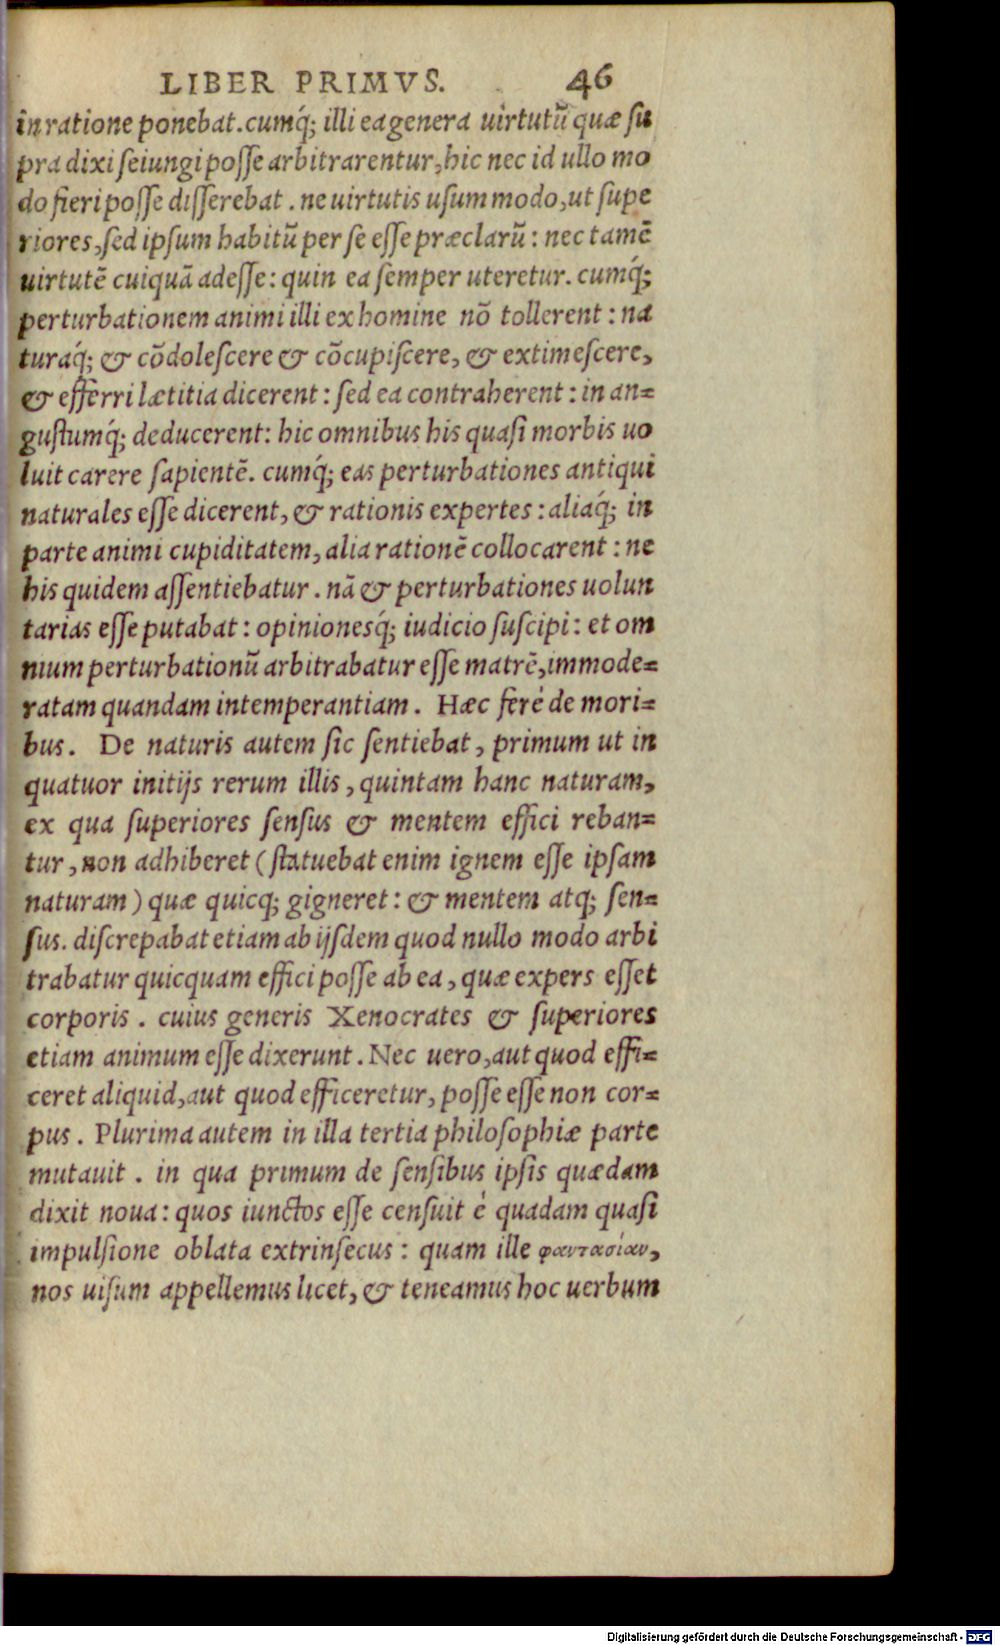 LIBER PRIMVS. 46
in ratione ponebat. cumq́; illi ea genera uirtutũ quæ ſu
pra dixi ſeiungi poſſe arbitrarentur, hic nec id ullo mo
do fieri poſſe diſſerebat. ne uirtutis uſum modo, ut ſupe
riores, ſed ipſum habitũ per ſe eſſe præclarũ: nec tamẽ
uirtutẽ cuiquã adeſſe: quin ea ſemper uteretur. cumq́;
perturbationem animi illi ex homine nõ tollerent: na
turaq́; & cõdoleſcere & cõcupiſcere, & extimeſcere,
& efferri lætitia dicerent: ſed ea contraherent: in an=
guſtumq́; deducerent: hic omnibus his quaſi morbis uo
luit carere ſapientẽ. cumq́; eas perturbationes antiqui
naturales eſſe dicerent, & rationis expertes: aliaq́; in
parte animi cupiditatem, alia rationẽ collocarent: ne
his quidem aſſentiebatur. nã & perturbationes uolun
tarias eſſe putabat: opinionesq́; iudicio ſuſcipi: et om
nium perturbationũ arbitrabatur eſſe matrẽ, immode=
ratam quandam intemperantiam. Hæc ferè de mori=
bus. De naturis autem ſic ſentiebat, primum ut in
quatuor initijs rerum illis, quintam hanc naturam,
ex qua ſuperiores ſenſus & mentem effici reban=
tur, non adhiberet (ſtatuebat enim ignem eſſe ipſam
naturam) quæ quicq; gigneret: & mentem atq; ſen=
ſus. diſcrepabat etiam ab ijſdem quod nullo modo arbi
trabatur quicquam effici poſſe ab ea, quæ expers eſſet
corporis. cuius generis Xenocrates & ſuperiores
etiam animum eſſe dixerunt. Nec uero, aut quod effi=
ceret aliquid, aut quod efficeretur, poſſe eſſe non cor=
pus. Plurima autem in illa tertia philoſophiæ parte
mutauit. in qua primum de ſenſibus ipſis quædam
dixit noua: quos iunctos eſſe cenſuit è quadam quaſi
impulſione oblata extrinſecus: quam ille φαντασίαν,
nos uiſum appellemus licet, & teneamus hoc uerbum
Digitalisierung gefördert durch die Deutsche Forschungsgemeinschaft - DFG